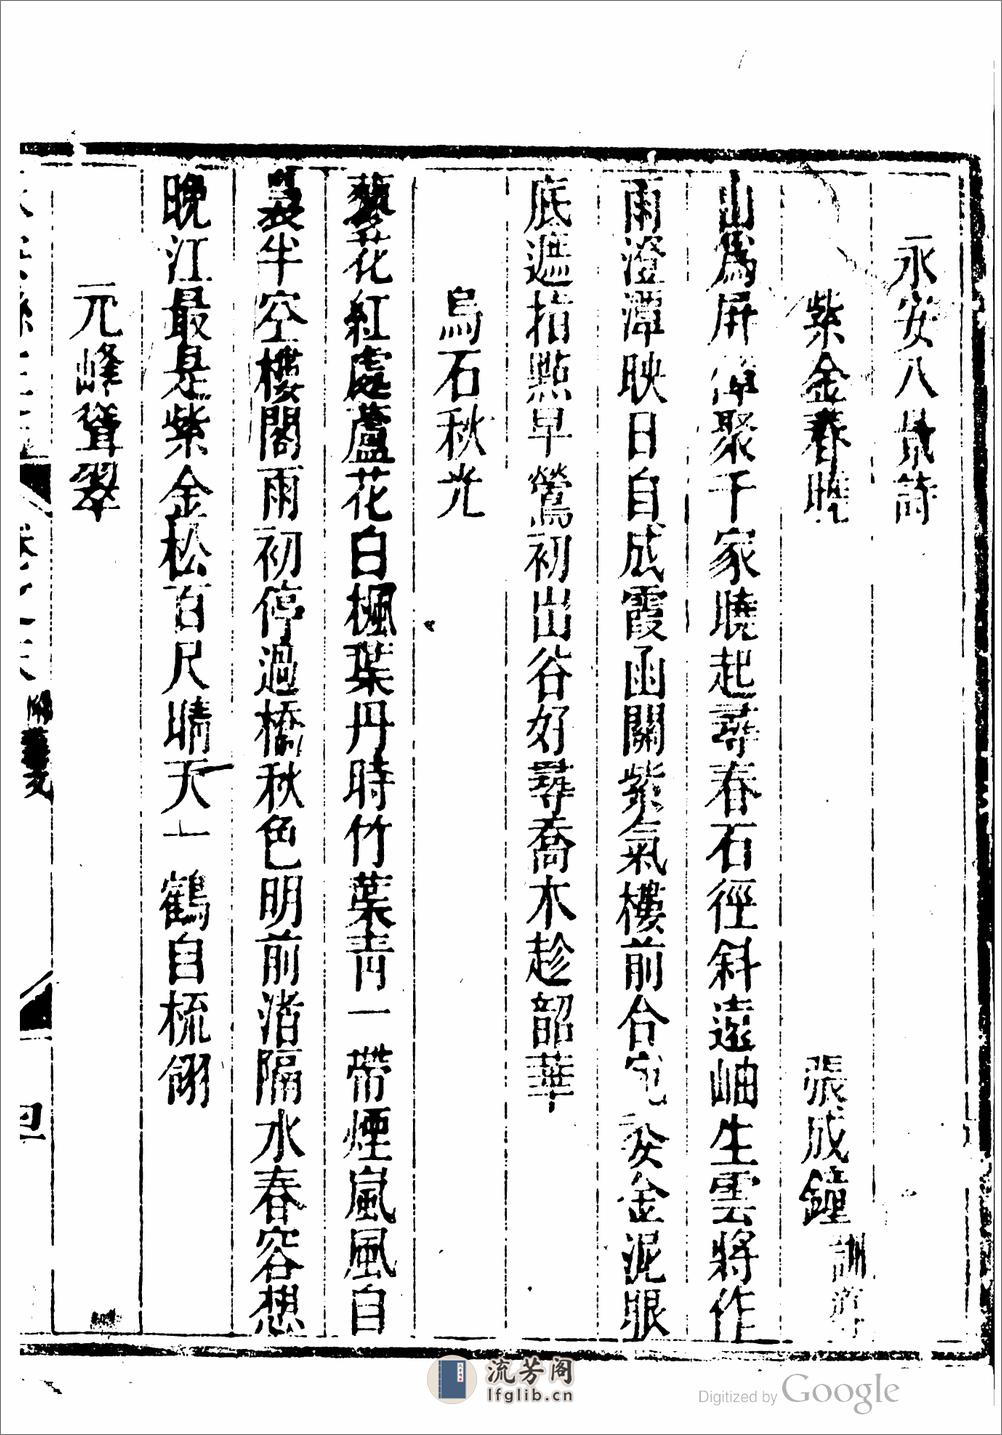 永安八景詩
紫金春曉 張成鐘 訓導
山為屏障聚千家曉起尋春石徑斜遠岫生雲將作
雨澄潭映日自成霞函關紫氣樓前合宛 金泥眼
底遮指點早鶯初出谷好尋喬木趁韶華
烏石秋光
蓼花紅處蘆花白楓葉丹時竹葉青一帶煙嵐風自
裊半空樓閣雨初停過橋秋色明前渚隔水春容想
晚江最是紫金松百尺晴天一鶴自梳翎
元峰聳翠
藝文
流芳阁
lfglib.cn
Digitized by Google